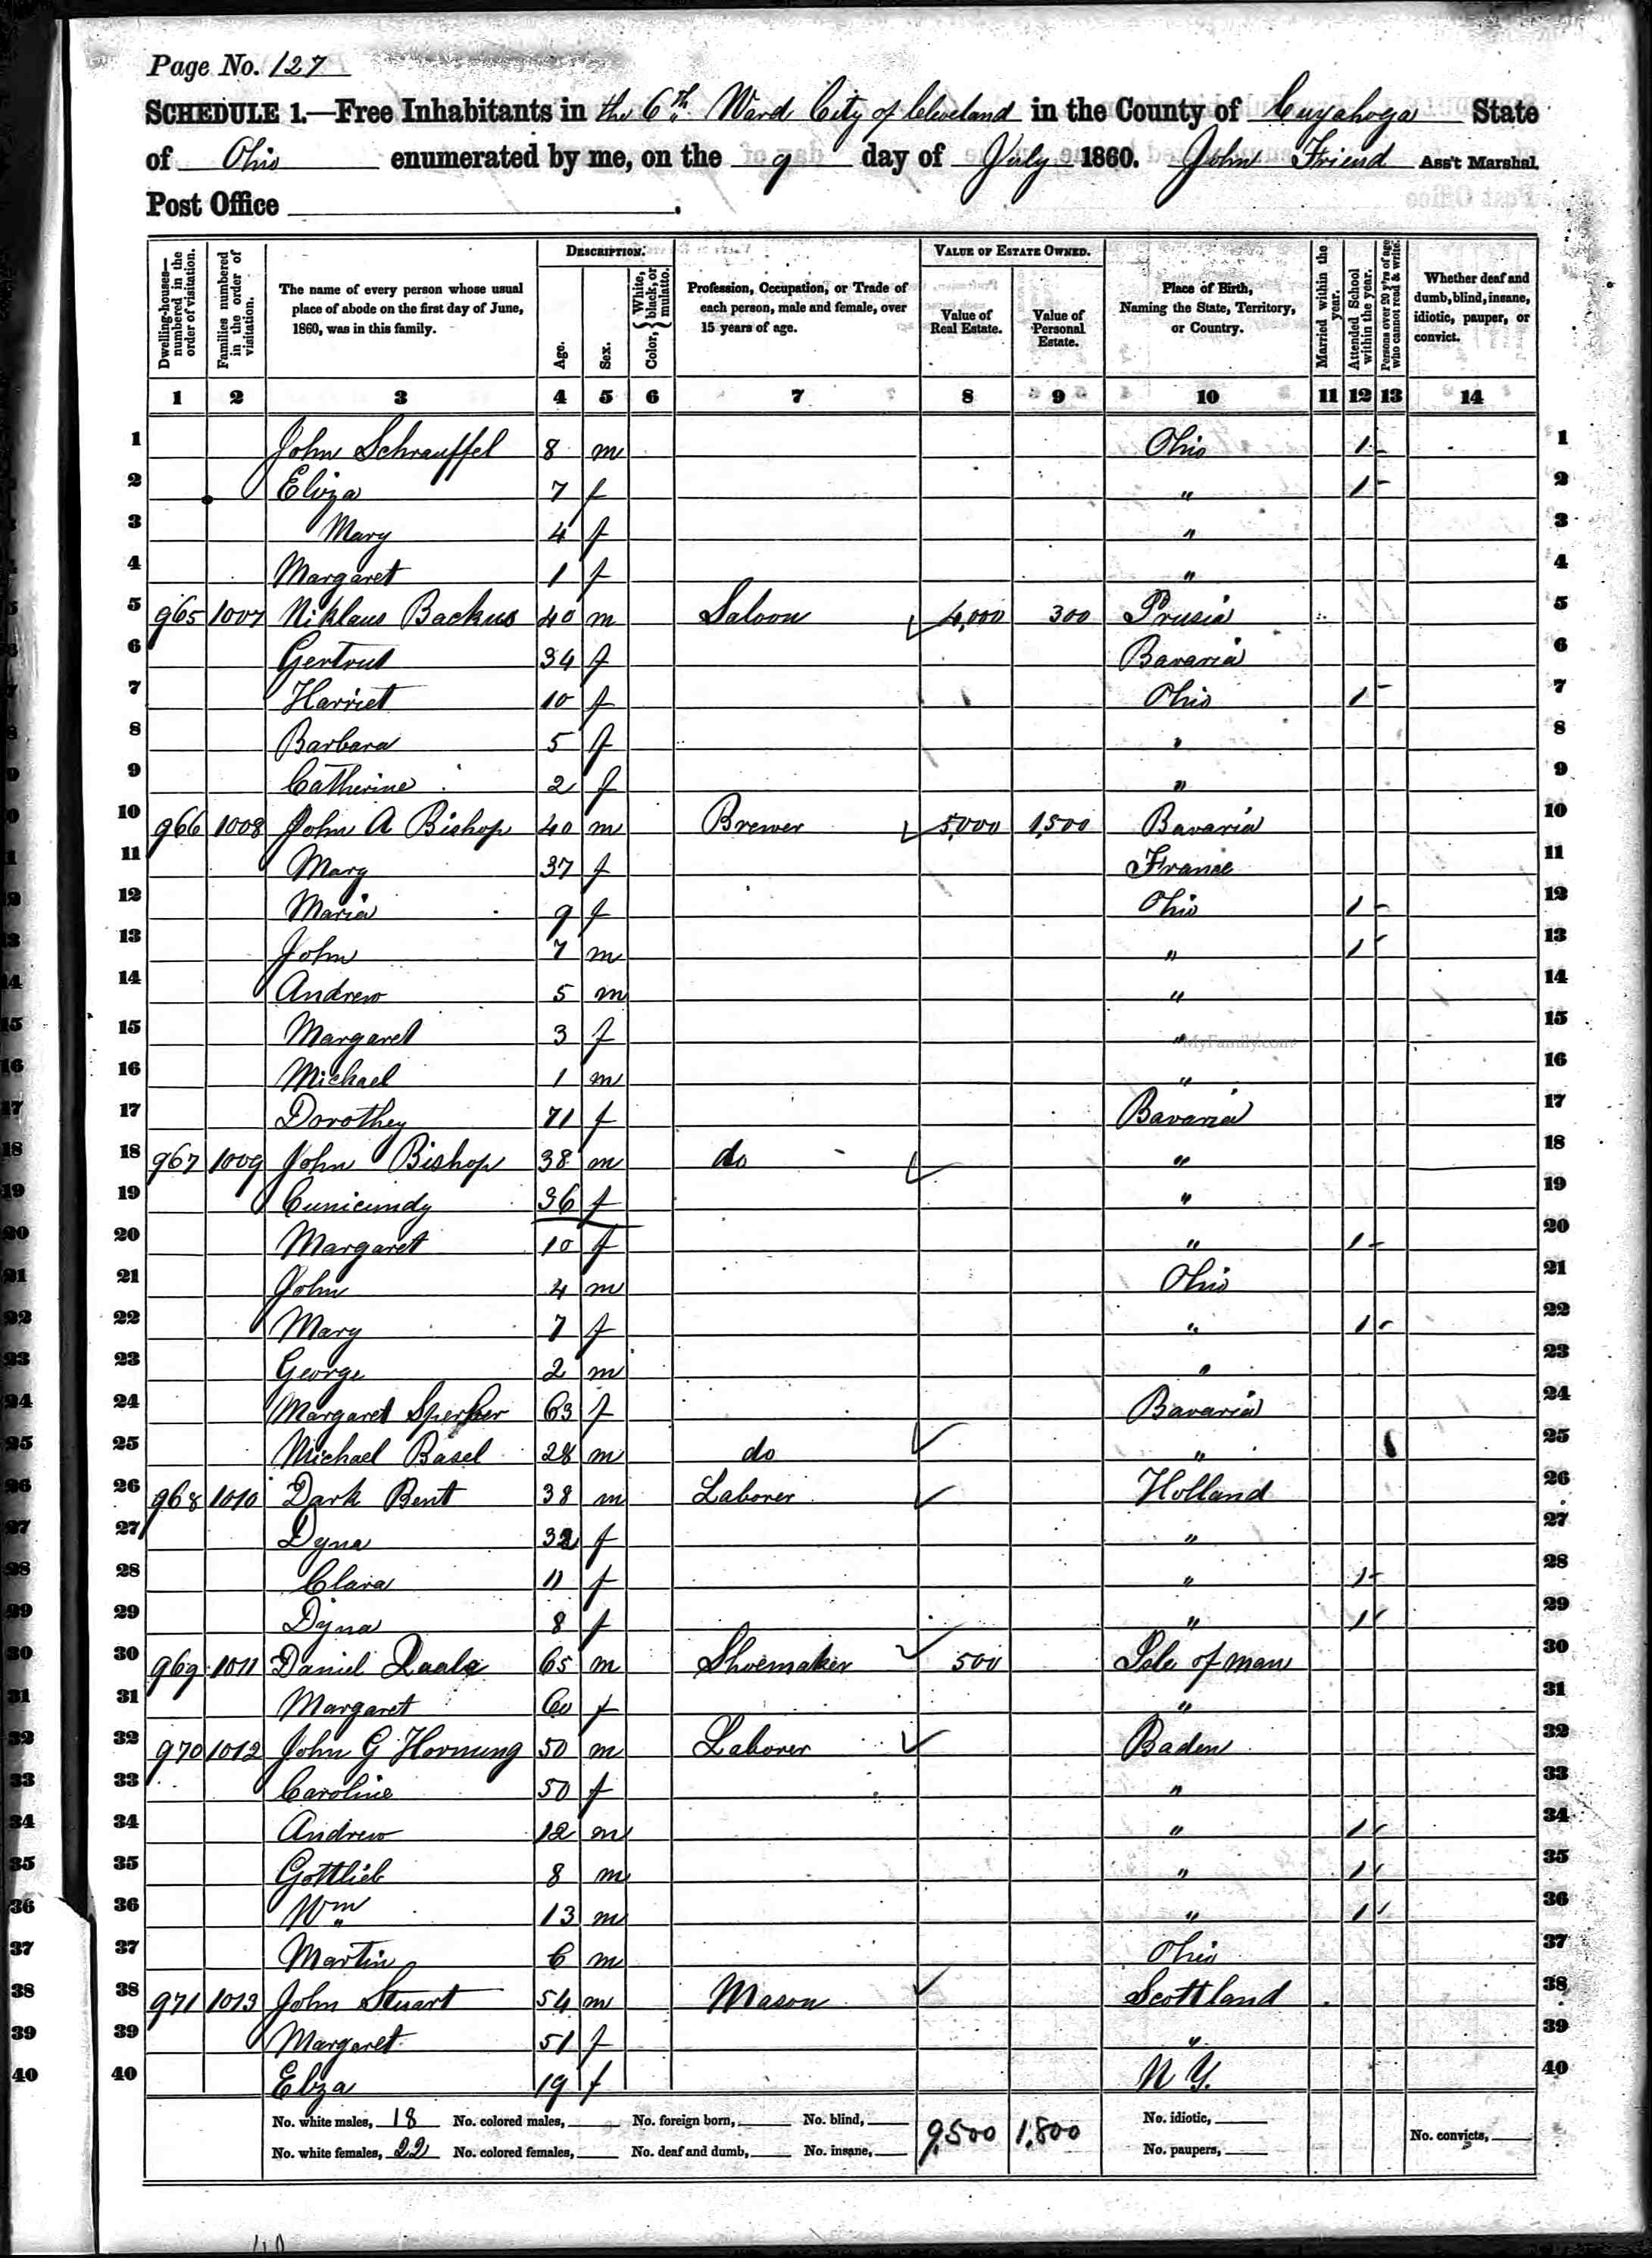 Page No. 127
SCHEDULE 1.—Free Inhabitants in the 6th Ward City of Cleveland in the County of Cuyahoga State
of Ohio enumerated by me, on the 9 day of July 1860. John Friend Ass't Marshal.
Post Office
Dwelling-houses—numbered in the order of visitation.
Families numbered in the order of visitation.
The name of every person whose usual place of abode on the first day of June, 1860, was in this family.
Description.
Age.
Sex.
Color, { White, black, or mulatto.
Profession, Occupation, or Trade of each person, male and female, over 15 years of age.
Value of Estate Owned.
Value of Real Estate.
Value of Personal Estate.
Place of Birth, Naming the State, Territory, or Country.
Married within the year.
Attended School within the year.
Persons over 20 y'rs of age who cannot read & write.
Whether deaf and dumb, blind, insane, idiotic, pauper, or convict.
1 2 3 4 5 6 7 8 9 10 11 12 13 14
1 John Schrauffel 8 m Ohio 1 1
2 Eliza 7 f " 1 2
3 Mary 4 f " 3
4 Margaret 1 f " 4
5 965 1007 Niklaus Backus 40 m Saloon 4,000 300 Prusia 5
6 Gertrut 34 f Bavaria 6
7 Harriet 10 f Ohio 1 7
8 Barbara 5 f " 8
9 Catherine 2 f " 9
10 966 1008 John A Bishop 40 m Brewer 5,000 1,500 Bavaria 10
11 Mary 37 f France 11
12 Maria 9 f Ohio 1 12
13 John 7 m " 1 13
14 Andrew 5 m " 14
15 Margaret 3 f " 15
MyFamily.com
16 Michael 1 m " 16
17 Dorothey 71 f Bavaria 17
18 967 1009 John Bishop 38 m do " 18
19 Cunicundy 36 f " 19
20 Margaret 10 f " 1 20
21 John 4 m Ohio 21
22 Mary 7 f " 1 22
23 George 2 m " 23
24 Margaret Sperber 63 f Bavaria 24
25 Michael Basel 28 m do " 1 25
26 968 1010 Dark Bent 38 m Laborer Holland 26
27 Dyna 32 f " 27
28 Clara 11 f " 1 28
29 Dyna 8 f " 1 29
30 969 1011 Daniel 65 m Shoemaker 500 Isle of man 30
31 Margaret 60 f " 31
32 970 1012 John G Hornung 50 m Laborer Baden 32
33 Caroline 50 f " 33
34 Andrew 12 m " 1 34
35 Gottlieb 8 m " 1 35
36 Wm 13 m " 1 36
37 Martin 6 m Ohio 37
38 971 1013 John Stuart 54 m Mason Scottland 38
39 Margaret 51 f " 39
40 Eliza 19 f N Y. 40
No. white males, 18 No. colored males, No. foreign born, No. blind, 9,500 1,800 No. idiotic,
No. white females, 22 No. colored females, No. deaf and dumb, No. insane, No. paupers, No. convicts,